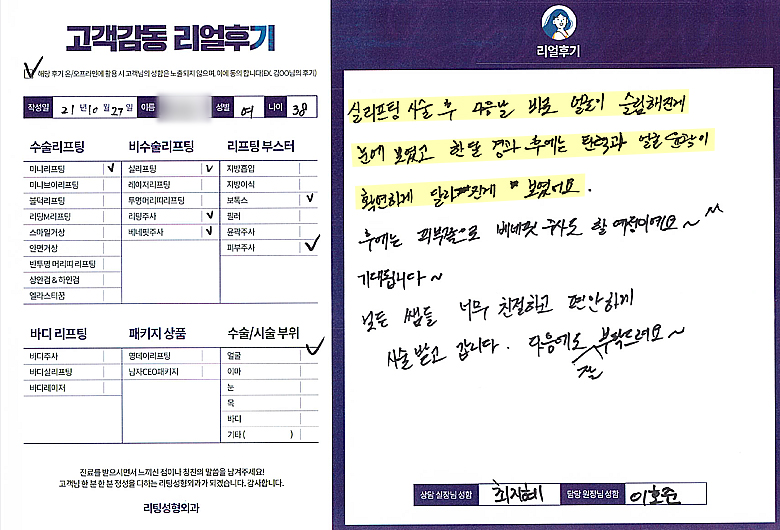 고객감동 리얼후기
해당 후기 온/오프라인에 활용 시 고객님의 성함은 노출되지 않으며, 이에 동의 합니다(EX. 김OO님의 후기)
작성일 21년 10월 27일 이름 성별 여 나이 38
수술리프팅
미니리프팅 ✓
미니브이리프팅
블덕리프팅
리팅M리프팅
스마일거상
안면거상
반투명 머리띠 리프팅
상안검 & 하안검
엘라스티꿈
비수술리프팅
실리프팅 ✓
레이저리프팅
투명머리띠리프팅
리팅주사 ✓
베네핏주사 ✓
리프팅 부스터
지방흡입
지방이식
보톡스 ✓
필러
윤곽주사
피부주사 ✓
바디 리프팅
바디주사
바디실리프팅
바디레이저
패키지 상품
명데이리프팅
남자CEO패키지
수술/시술 부위
얼굴 ✓
이마
눈
목
바디
기타 ( )
진료를 받으시면서 느끼신 점이나 칭찬의 말씀을 남겨주세요!
고객님 한 분 한 분 정성을 다하는 리팅성형외과가 되겠습니다. 감사합니다.
리팅성형외과
리얼후기
실리프팅 시술 후 다음날 바로 얼굴이 슬림해진게
눈에 보였고 한달 경과 후에는 탄력과 얼굴 윤곽이
확연하게 달라진게 보였어요.
후에는 피부꿈으로 베네핏 주사도 할 예정이에요~
기대됩니다~
모든 쌤들 너무 친절하고 편안하게
시술 받고 갑니다. 다음에도 잘 부탁드려요~
상담 실장님 성함 최지혜 담당 원장님 성함 이호준